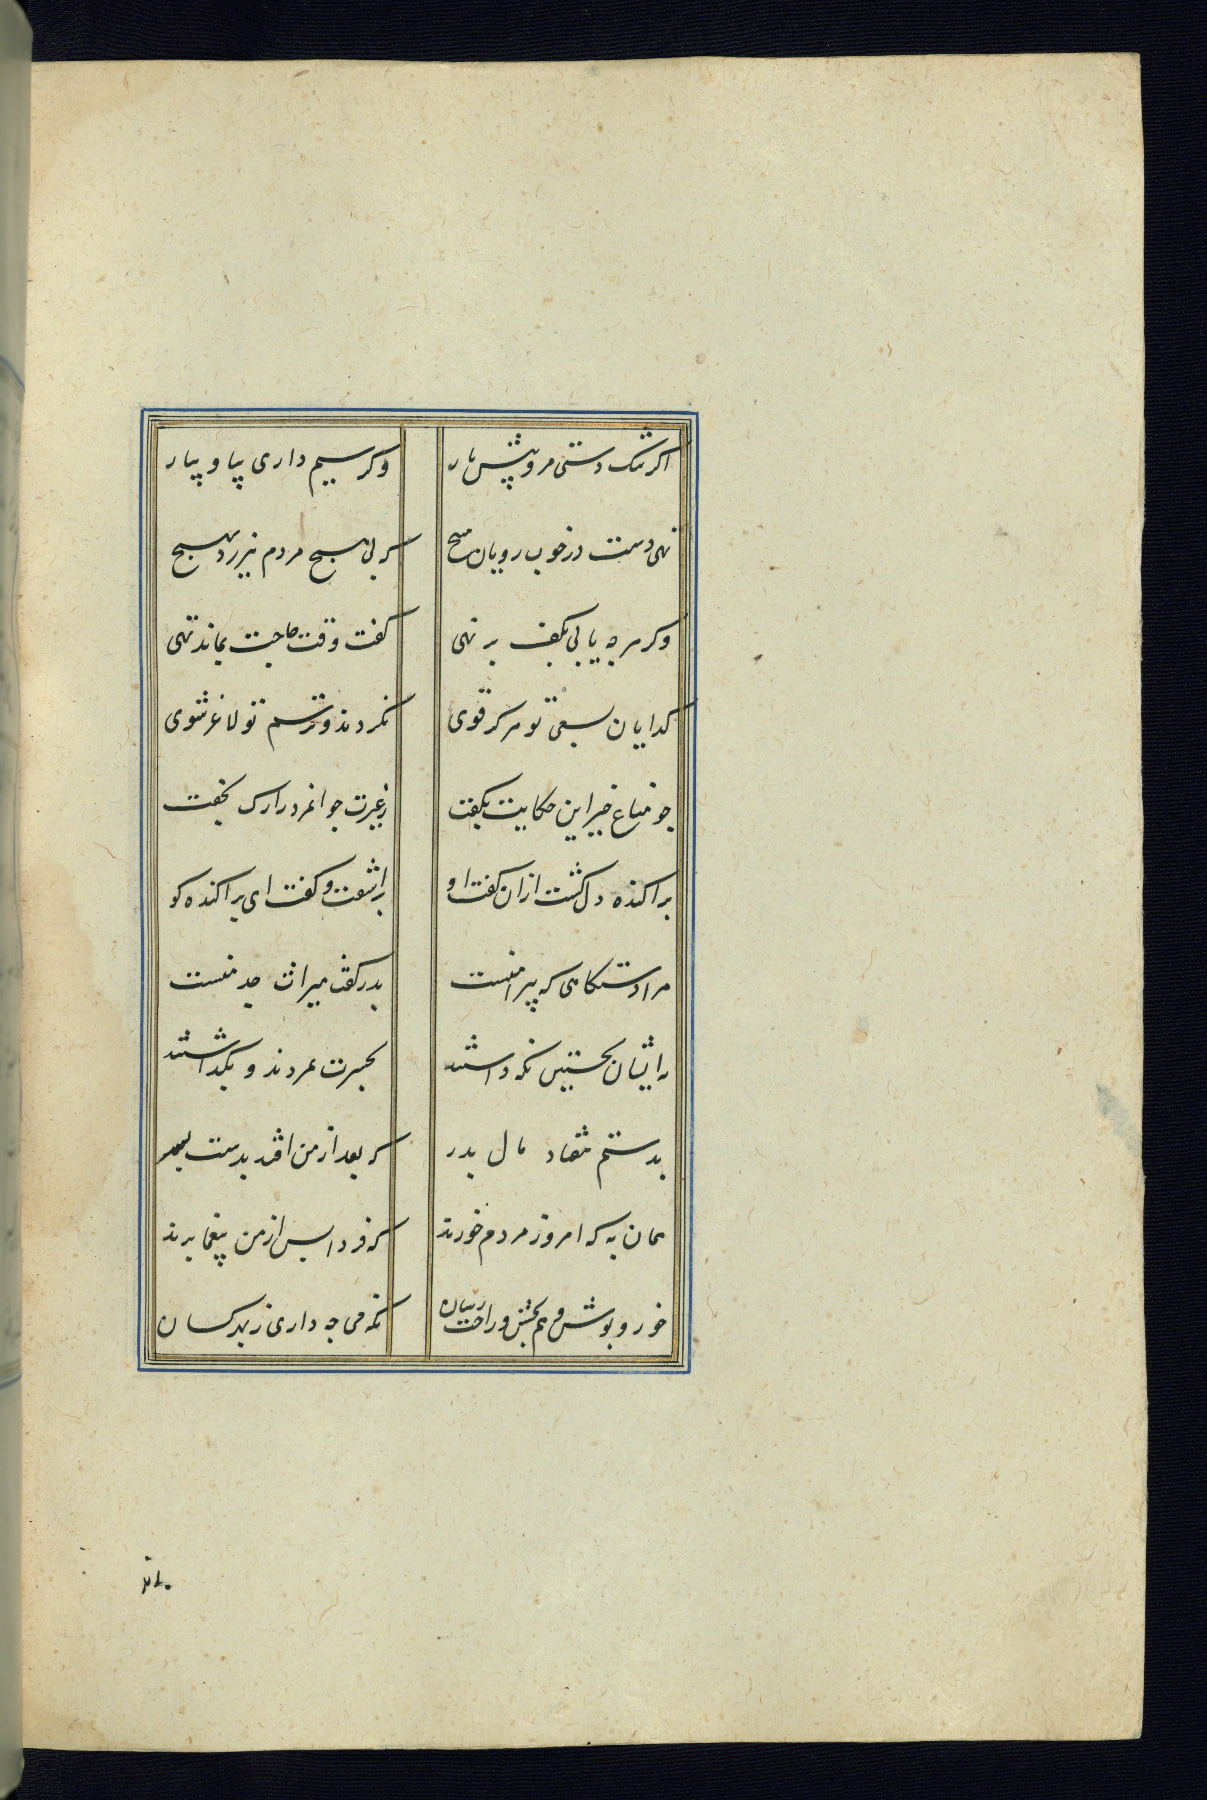 اکر تنک دستی مرو پیش یار وکر سیم داری بیا و بیار
تهی دست در خوب رویان مپیچ که بی هیچ مردم نیرزد بهیچ
وکر هرچه یابی بکف بر نهی کفت وقت حاجت بماند تهی
کدایان بسعی تو هرکز قوی نکردند و ترسم تو لاغر شوی
چو مناع خیر این حکایت بکفت زغیرت جوانمرد را رک نخفت
براکنده دل کشت ازان کفت و براشفت و کفت ای براکنده کو
مرا دستکاهی که پیرامنست بدر کفت میراث جد منست
نه ایشان بخستین نکه داشتند بحسرت بمردند و بکداشتند
بدستم نیفتاد مال بدر که بعد از من افتد بدست بسر
همان به که امروز مردم خورند که فردا بس از من بیغما برند
خور و بوش و هم بخش و راحت رسان نکه می چه داری زبهر کسان
برند